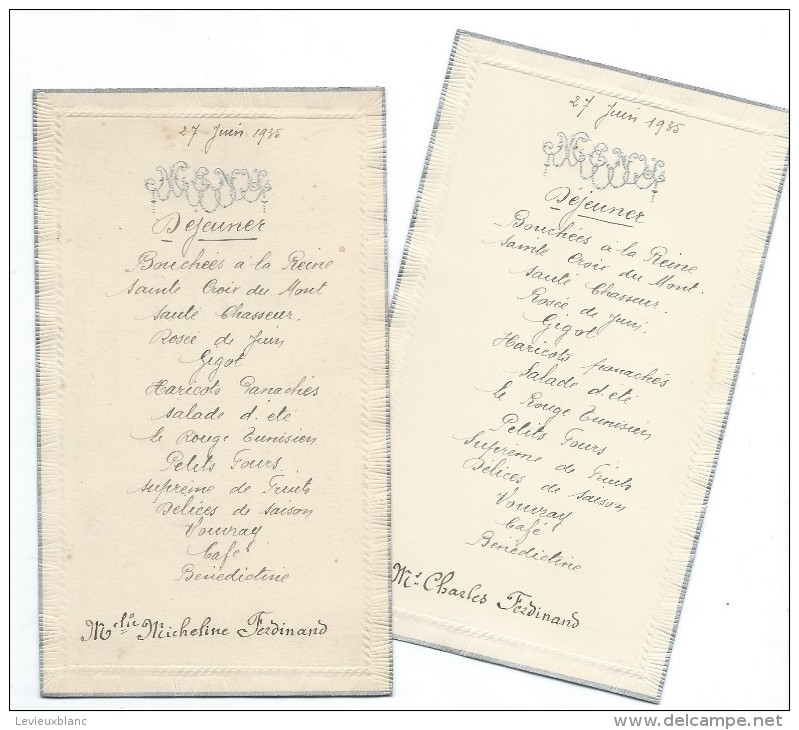 27 Juin 1935
MENU
Déjeuner
Bouchées à la Reine
Sainte Croix du Mont
Sauté Chasseur.
Rosée de Juin
Gigot
Haricots Panachés
Salade d'été
Le Rouge Tunisien
Petits Fours
Suprême de Fruits
Délices de Saison
Vouvray
Café
Bénédictine
Melle Micheline Ferdinand
27 Juin 1935
MENU
Déjeuner
Bouchées à la Reine
Sainte Croix du Mont.
Sauté Chasseur.
Rosée de Juin.
Gigot
Haricots panachés
Salade d'été
Le Rouge Tunisien
Petits Fours
Suprême de Fruits
Délices de Saison
Vouvray
Café
Bénédictine
Mr Charles Ferdinand
Levieuxblanc
delcampe.net